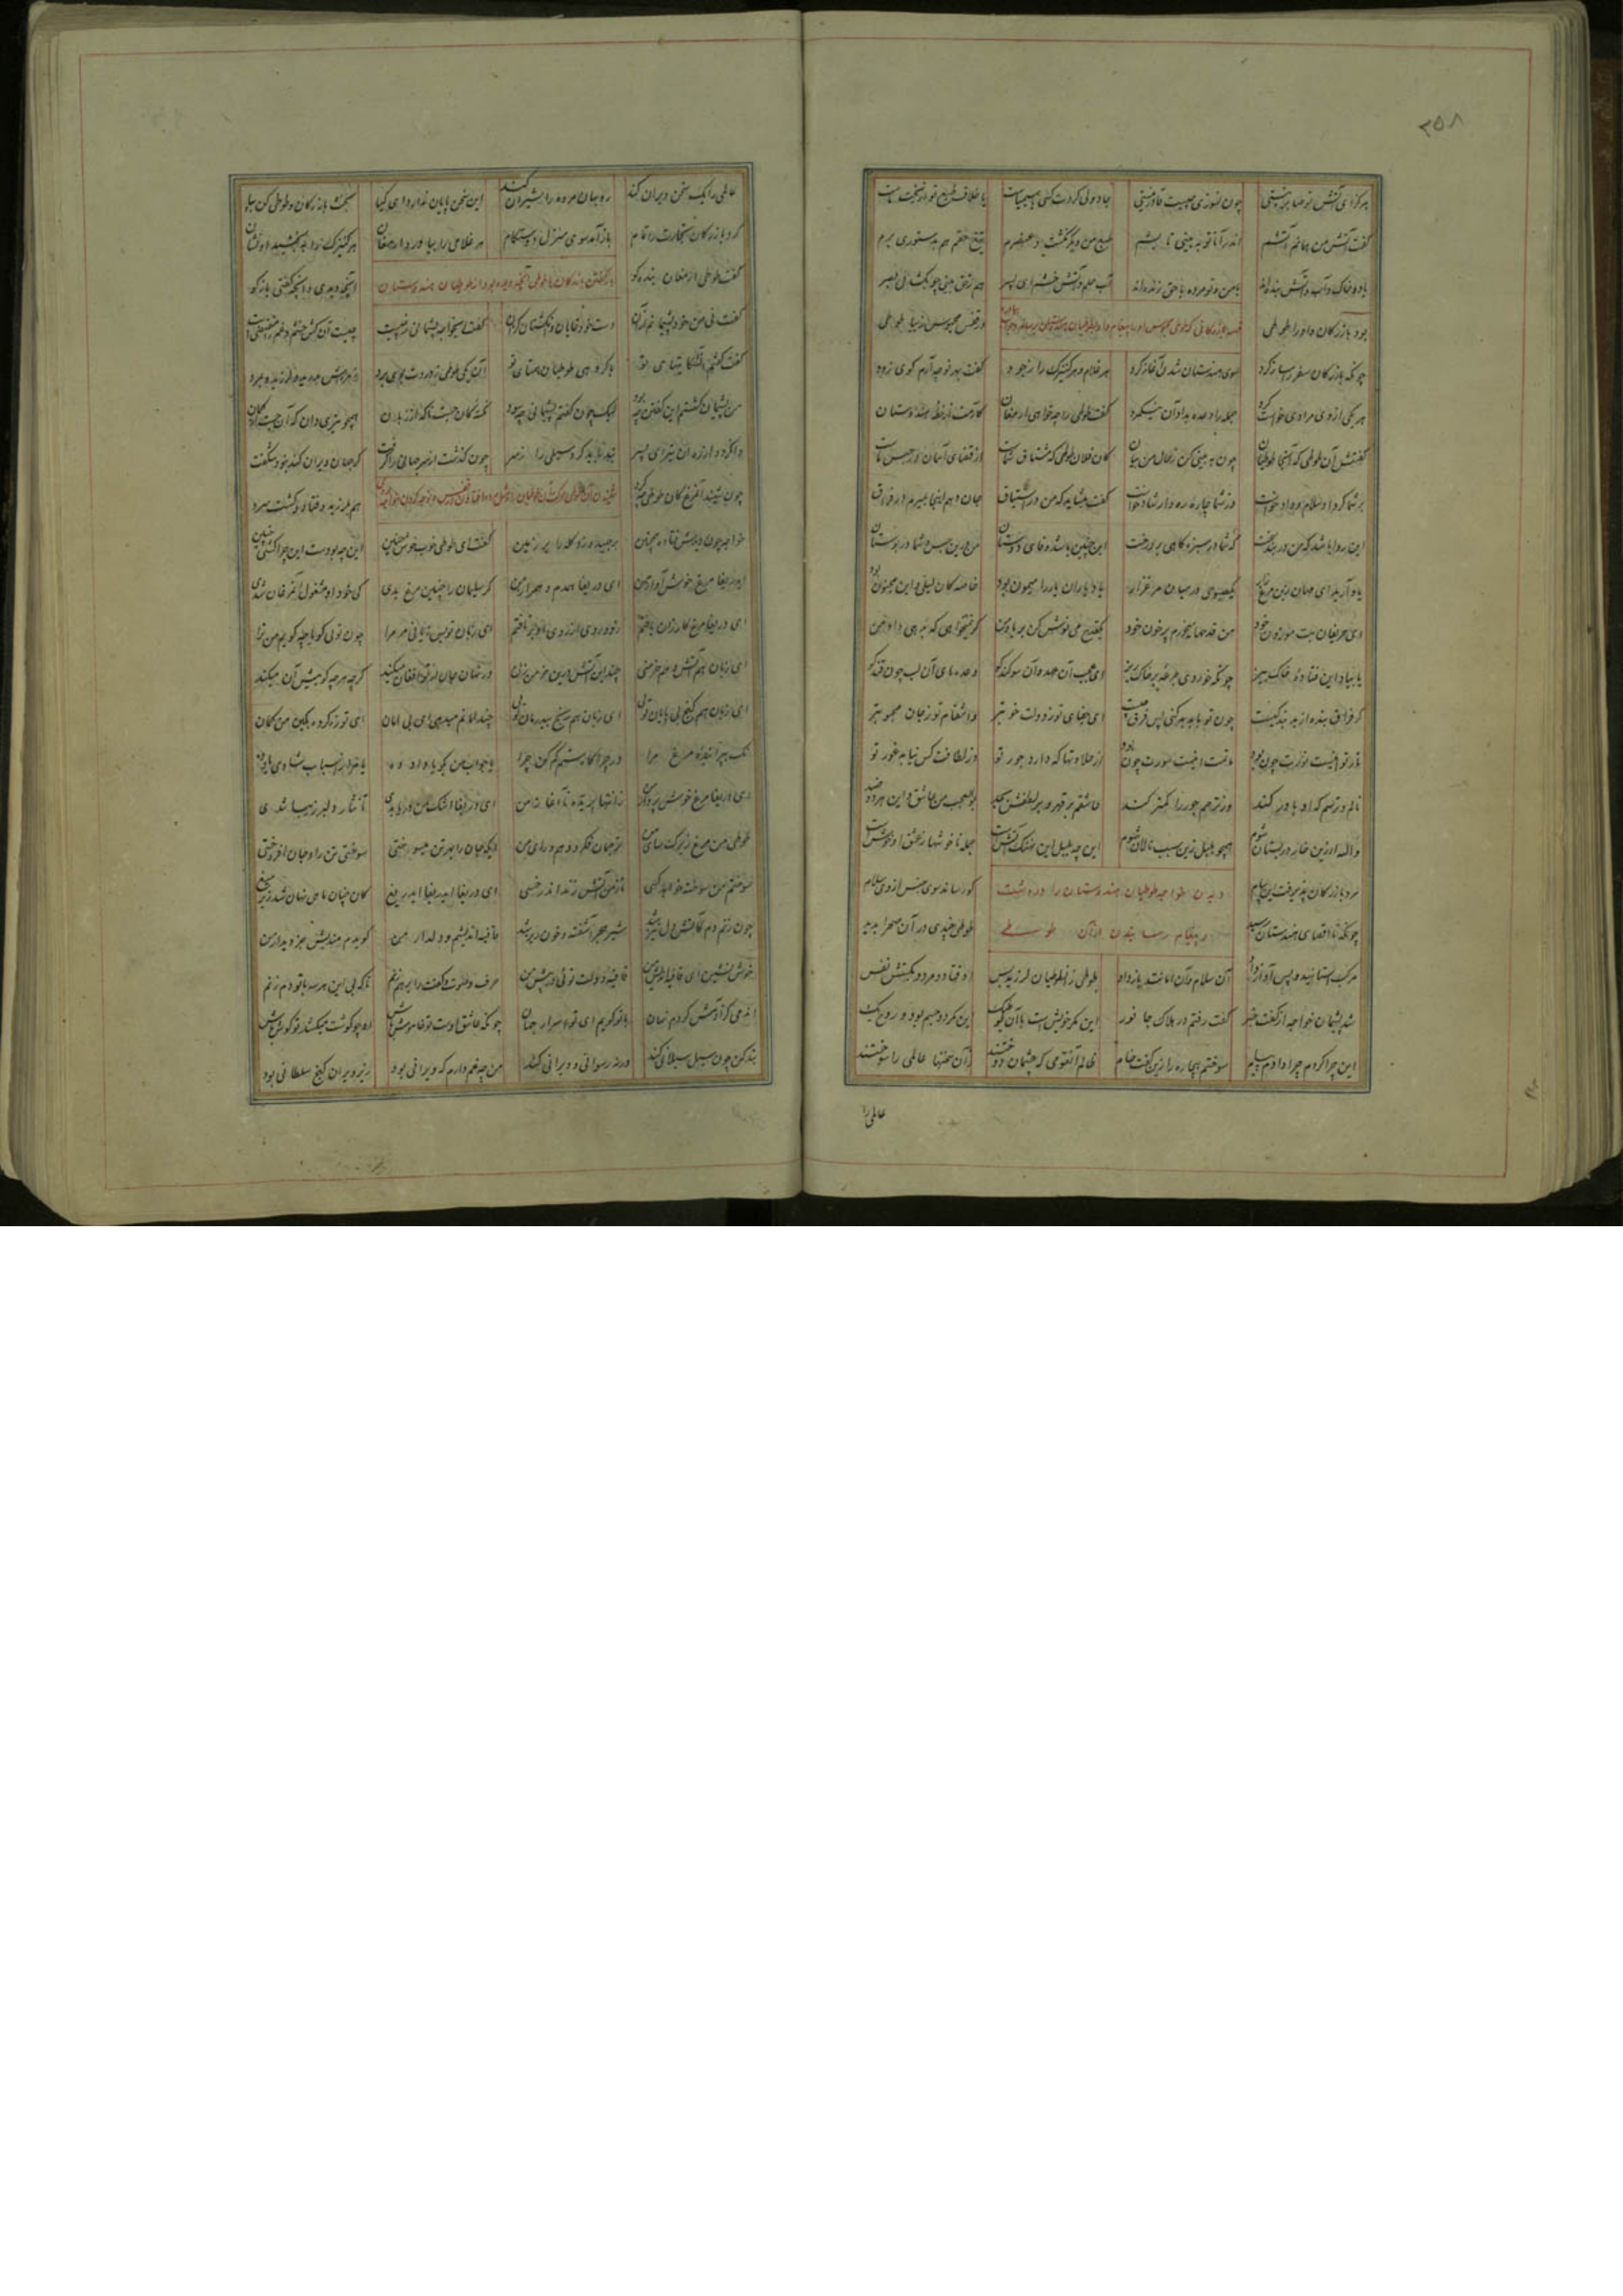 ۲۵۸
چون نسوزی چیست قادر نیستی جادوئی کردت کسی یا سیمیاست یا خلاف طبع تو از بخت ماست
گفت آتش من همانم آتشم اندر آ تا تو ببینی تابشم طبع من دیگر نگشت و عنصرم تیغ حقم هم بدستوری برم
باد و خاک و آب و آتش بنده‌اند با من و تو مرده با حق زنده‌اند
بود بازرگان و او را طوطی در قفس محبوس زیبا طوطی
چونکه بازرگان سفر را ساز کرد سوی هندستان شدن آغاز کرد هر غلام و هر کنیزک را ز جود گفت بهر تو چه آرم گوی زود
هر یکی از وی مرادی خواست کرد جمله را وعده بداد آن نیکمرد گفت طوطی را چه خواهی ارمغان کارمت از خطه هندوستان
گفتش آن طوطی که آنجا طوطیان چون به بینی کن ز حال من بیان کان فلان طوطی که مشتاق شماست از قضای آسمان در حبس ماست
بر شما کرد او سلام و داد خواست وز شما چاره و ره ارشاد خواست گفت میشاید که من در اشتیاق جان دهم اینجا بمیرم در فراق
این روا باشد که من در بند سخت که شما بر سبزه گاهی بر درخت این چنین باشد وفای دوستان من درین حبس و شما در بوستان
یاد آرید ای مهان زین مرغ زار یکصبوحی در میان مرغزار یاد یاران یار را میمون بود خاصه کان لیلی و این مجنون بود
ای حریفان بت موزون خود من قدحها میخورم پر خون خود یکقدح می نوش کن بر یاد من گر نمیخواهی که بدهی داد من
یا بیاد این فتاده خاک بیز چونکه خوردی جرعه بر خاک ریز ای عجب آن عهد و آن سوگند کو وعده‌های آن لب چون قند کو
گر فراق بنده از بد بندگیست چون تو با بد بد کنی پس فرق چیست ای جفای تو ز دولت خوبتر و انتقام تو ز جان محبوبتر
نار تو اینست نورت چون بود ماتمت اینست سورت چون بود از حلاوتها که دارد جور تو وز لطافت کس نیابد غور تو
نالم و ترسم که او باور کند وز ترحم جور را کمتر کند عاشقم بر قهر و بر لطفش بجد بوالعجب من عاشق این هر دو ضد
والله ار زین خار در بستان شوم همچو بلبل زین سبب نالان شوم این چه بلبل این نهنگ آتشست جمله ناخوشها ز عشق او خوش است
مرد بازرگان پذیرفت این پیام دیدن خواجه طوطیان هندوستان را در دشت کو رساند سوی جنس از وی سلام
چونکه تا اقصای هندستان رسید و پیغام رسانیدن از آن طوطی طوطی چندی در آن صحرا بدید
مرکب استانید و پس آواز داد آن سلام و آن امانت باز داد طوطی زان طوطیان لرزید پس اوفتاد و مرد و بگسستش نفس
شد پشیمان خواجه از گفت خبر گفت رفتم در هلاک جانور این مگر خویش است با آن طوطیک این مگر دو جسم بود و روح یک
این چرا کردم چرا دادم پیام سوختم بیچاره را زین گفت خام ظالم آنقومی که چشمان دوختند زان سخنها عالمی را سوختند
عالمی را
عالمی را یک سخن ویران کند روبهان مرده را شیران کند این سخن پایان ندارد ای کیا بحث بازرگان و طوطی کن بیا
کرد بازرگان تجارت را تمام باز آمد سوی منزل دوستکام هر غلامی را بیاورد ارمغان هر کنیزک را ببخشید او نشان
گفت طوطی ارمغان بنده کو آنچه دیدی و آنچه گفتی بازگو
گفت نی من خود پشیمانم از آن دست خود خایان و انگشتان گزان گفت ایخواجه پشیمانی ز چیست چیست آن کین خشم و غم را مقتضیست
گفت گفتم آن شکایتهای تو با گروهی طوطیان همتای تو آن یکی طوطی ز دردت بوی برد زهره‌اش بدرید و لرزید و بمرد
من پشیمان گشتم این گفتن چه بود لیک چون گفتم پشیمانی چه سود نکته کان جست ناگه از زبان همچو تیری دان که آن جست از کمان
وا نگردد از ره آن تیر ای پسر بند باید کرد سیلی را ز سر چون گذشت از سر جهانی را گرفت گر جهان ویران کند نبود شگفت
چون شنید آن مرغ کان طوطی چه کرد هم بلرزید و فتاد و گشت سرد
خواجه چون دیدش فتاده همچنین بر جهید و زد کله را بر زمین گفت ای طوطی خوب خوش حنین این چه بودت این چرا گشتی چنین
ای دریغا مرغ خوش آواز من ای دریغا همدم و همراز من گر سلیمان را چنین مرغی بدی کی خود او مشغول آن مرغان شدی
ای دریغا مرغ کارزان یافتم زود روی از روی او بر تافتم ای زبان تو بس زیانی مر مرا چون توئی گویا چه گویم من ترا
ای زبان هم آتش و هم خرمنی چند این آتش درین خرمن زنی در نهان جان از تو افغان میکند گرچه هرچه گوئیش آن میکند
ای زبان هم گنج بی پایان توئی ای زبان هم رنج بیدرمان توئی چند امانم میدهی ای بی امان ای تو زه کرده بکین من کمان
نک بپرانیده مرغ مرا در چراگاه ستم کم کن چرا یا جواب من بگو یا داد ده یا مرا ز اسباب شادی یاد ده
ای دریغا مرغ خوش پرواز من ز انتها پریده تا آغاز من ای دریغا اشک من دریا بدی تا نثار دلبر زیبا شدی
طوطی من مرغ زیرکسار من ترجمان فکرت و اسرار من
سوختم من سوخته خواهد کسی تا ز من آتش زند اندر خسی ای دریغا ای دریغا ای دریغ کان چنان ماهی نهان شد زیر میغ
چون زنم دم کآتش دل تیز شد شیر هجر آشفته و خون ریز شد قافیه اندیشم و دلدار من گویدم مندیش جز دیدار من
خوش نشین ای قافیه اندیش من قافیه دولت توئی در پیش من حرف و صوت و گفت را بر هم زنم تا که بی این هر سه با تو دم زنم
آندمی کز آدمش کردم نهان با تو گویم ای تو اسرار جهان چونکه عاشق اوست تو خاموش باش او چو گوشت میکشد تو گوش باش
بند کن چون سیل سیلانی کند ورنه رسوائی و ویرانی کند من چه غم دارم که ویرانی بود زیر ویران گنج سلطانی بود